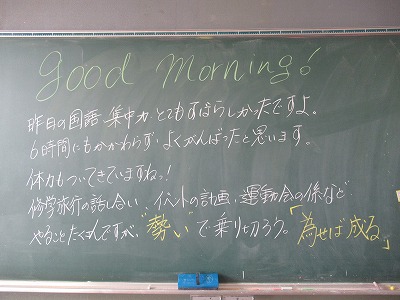 good morning!
昨日の国語、集中力、とてもすばらしかったですよ。
6時間にもかかわらず、よくがんばったと思います。
体力もついてきていますねっ!
修学旅行の話し合い、イベントの計画、運動会の係など
やることたくさんですが、"勢い"で乗り切ろう。「為せば成る」